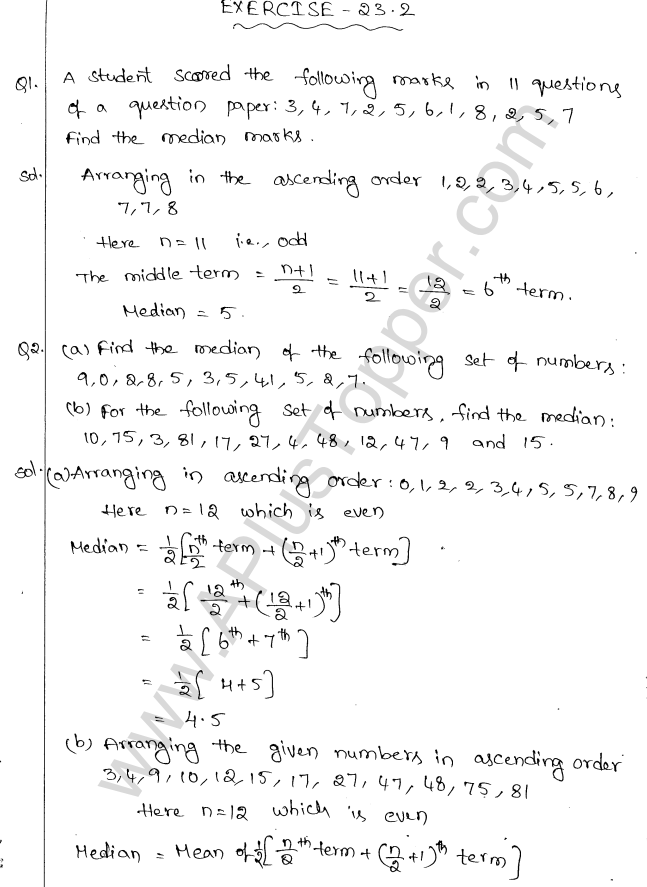 EXERCISE - 23.2
Q1. A student scored the following marks in 11 questions
of a question paper: 3, 4, 7, 2, 5, 6, 1, 8, 2, 5, 7
Find the median marks.
Sol. Arranging in the ascending order 1, 2, 2, 3, 4, 5, 5, 6,
7, 7, 8
Here n = 11 i.e., odd
The middle term = n+1/2 = 11+1/2 = 12/2 = 6th term.
Median = 5.
Q2. (a) Find the median of the following set of numbers:
9, 0, 2, 8, 5, 3, 5, 41, 5, 2, 7.
(b) For the following set of numbers, find the median:
10, 75, 3, 81, 17, 27, 4, 48, 12, 47, 9 and 15.
Sol. (a) Arranging in ascending order: 0, 1, 2, 2, 3, 4, 5, 5, 7, 8, 9
Here n = 12 which is even
Median = 1/2 [n/2 th term + (n/2 + 1)th term]
= 1/2 [12/2 th + (12/2 + 1)th]
= 1/2 [6th + 7th]
= 1/2 [4+5]
= 4.5
(b) Arranging the given numbers in ascending order
3, 4, 9, 10, 12, 15, 17, 27, 47, 48, 75, 81
Here n = 12 which is even
Median = Mean of 1/2 [n/2 th term + (n/2 + 1)th term]
www.APlusTopper.com